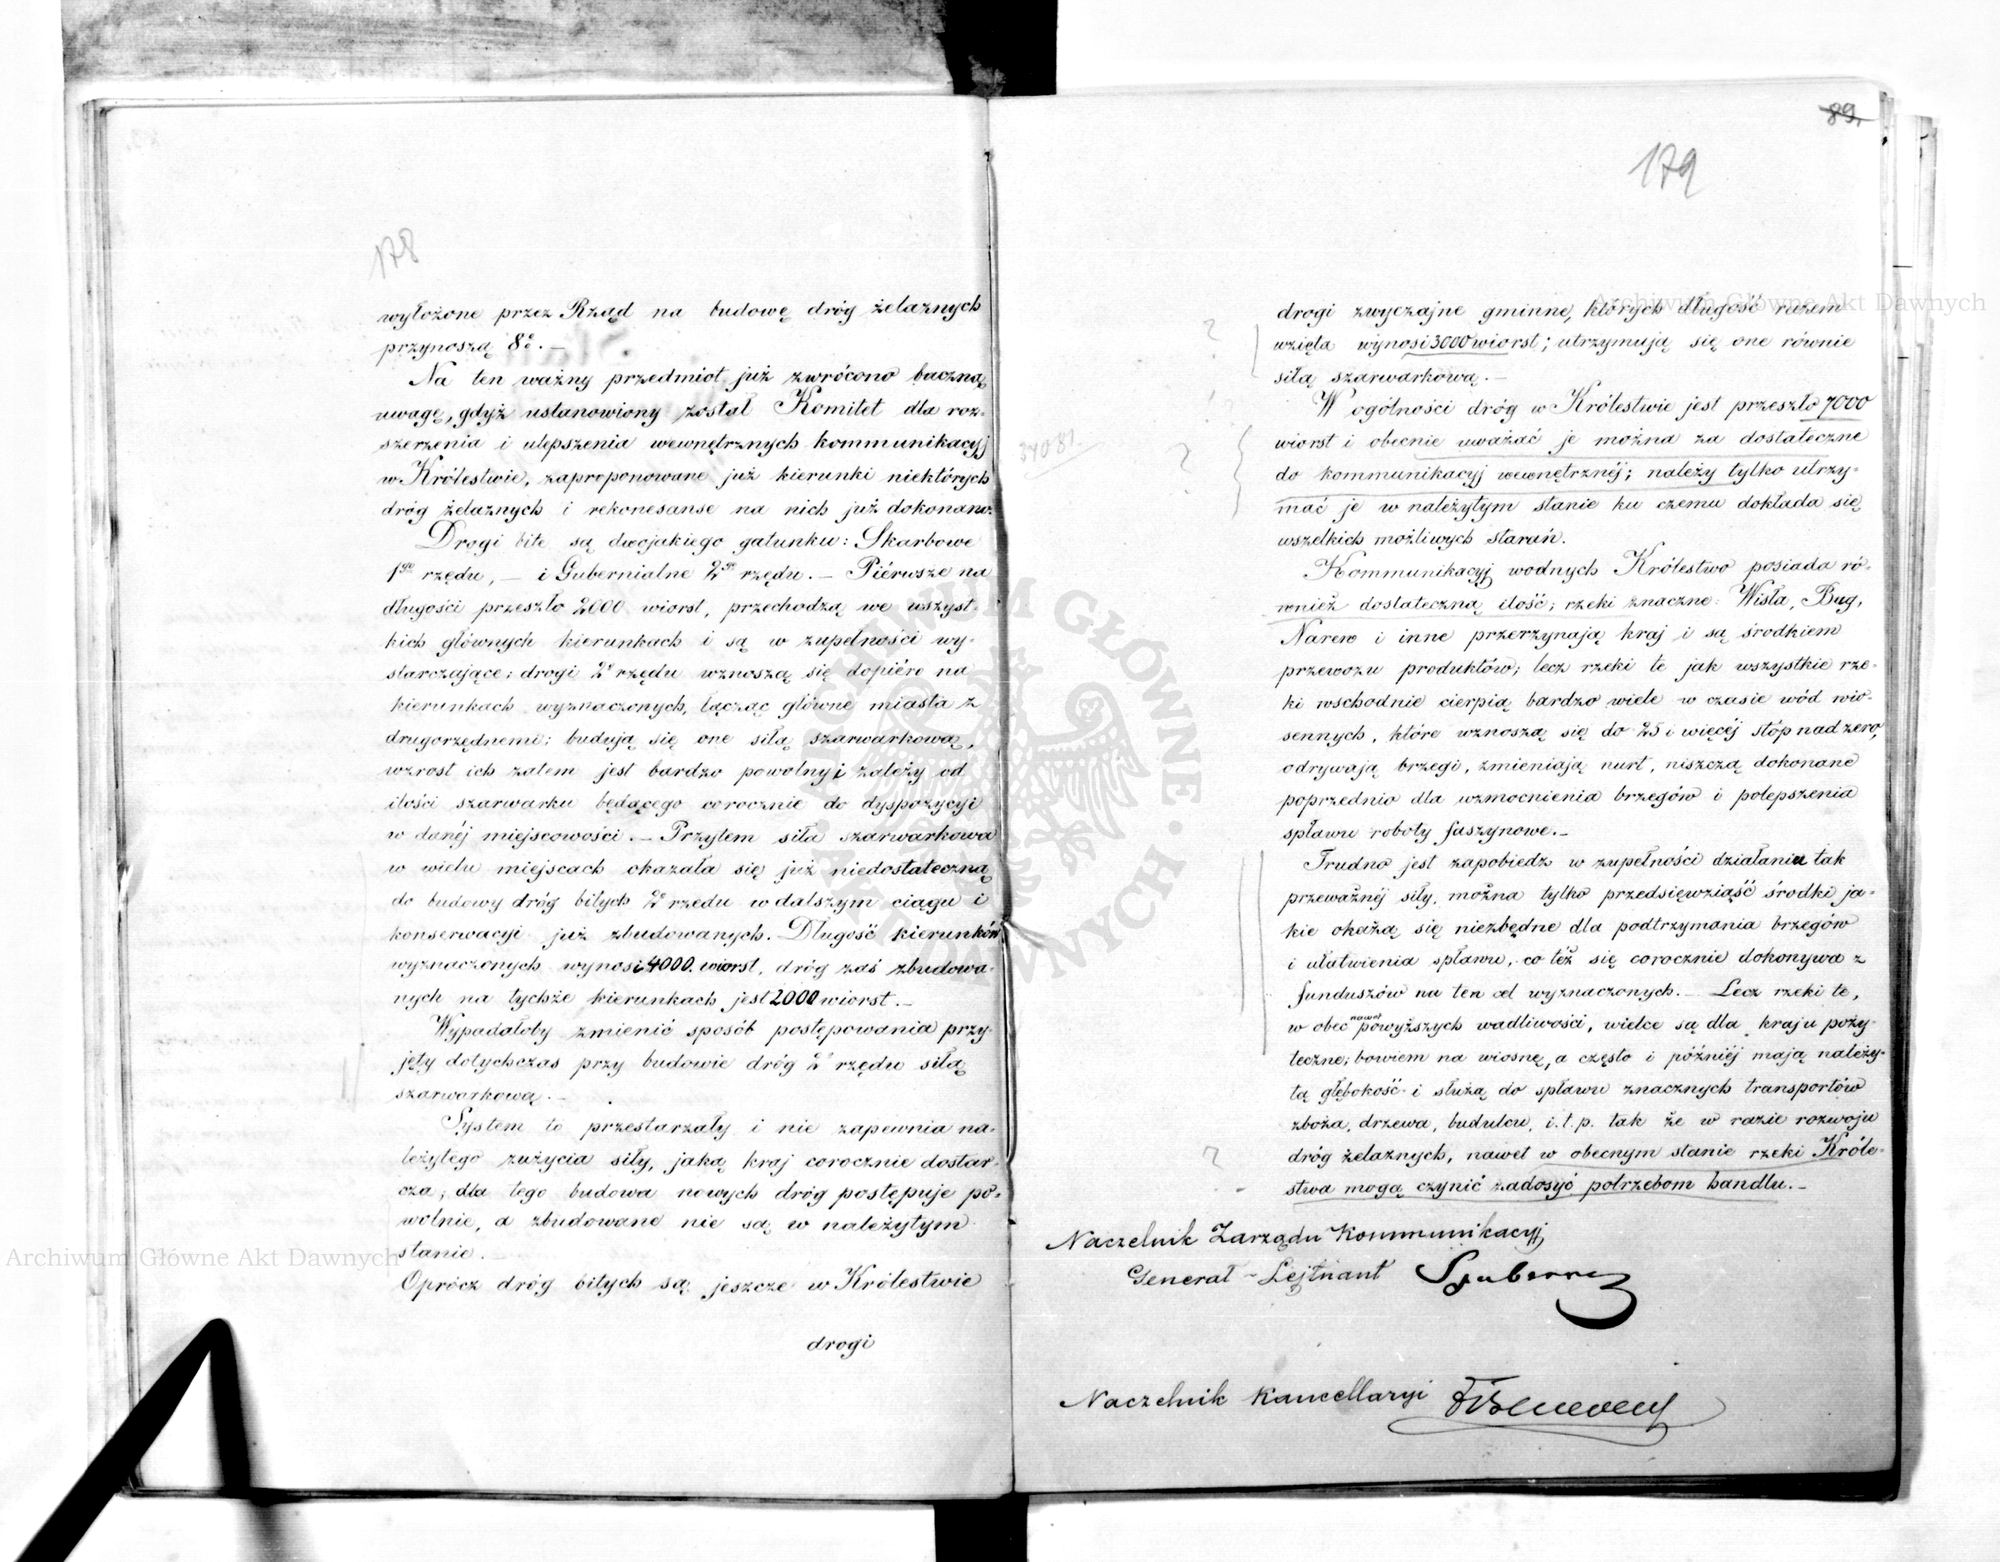 178
wyłożone przez Rząd na budowę dróg żelaznych
przynoszą 8%. —
Na ten ważny przedmiot już zwrócono baczną
uwagę, gdyż ustanowiony został Komitet dla roz-
szerzenia i ulepszenia wewnętrznych kommunikacyj
w Królestwie, zaproponowane już kierunki niektórych
dróg żelaznych i rekonesanse na nich już dokonano.
Drogi bite są dwojakiego gatunku: Skarbowe
1go rzędu, — i Gubernialne 2go rzędu. — Piérwsze na
długości przeszło 2000 wiorst, przechodzą we wszyst-
kich głównych kierunkach i są w zupełności wy-
starczające; drogi 2o rzędu wznoszą się dopiéro na
kierunkach wyznaczonych, łącząc główne miasta z
drugorzędnemi; budują się one siłą szarwarkową,
wzrost ich zatem jest bardzo powolny i zależy od
ilości szarwarku będącego corocznie do dyspozycyi
w danéj miejscowości. — Przytem siła szarwarkowa
w wielu miejscach okazała się już niedostateczną
do budowy dróg bitych 2o rzędu w dalszym ciągu i
konserwacyi już zbudowanych. Długość kierunków
wyznaczonych wynosi 4000 wiorst, dróg zaś zbudowa-
nych na tychże kierunkach jest 2000 wiorst. —
Wypadałoby zmienić sposób postępowania przy-
jęty dotychczas przy budowie dróg 2o rzędu siłą
szarwarkową. —
System to przestarzały i nie zapewnia na-
leżytego zużycia siły, jaką kraj corocznie dostar-
cza; dla tego budowa nowych dróg postępuje po-
wolnie, a zbudowane nie są w należytym
stanie. —
Oprócz dróg bitych są jeszcze w Królestwie
drogi
89.
179
drogi zwyczajne gminne, których długość razem
wzięta wynosi 3000 wiorst; utrzymują się one równie
siłą szarwarkową. —
W ogólności dróg w Królestwie jest przeszło 7000
wiorst i obecnie uważać je można za dostateczne
do kommunikacyj wewnętrznéj; należy tylko utrzy-
mać je w należytym stanie ku czemu dokłada się
wszelkich możliwych starań.
Kommunikacyj wodnych Królestwo posiada ró-
wnież dostateczną ilość; rzeki znaczne: Wisła, Bug,
Narew i inne przerzynają kraj i są środkiem
przewozu produktów; lecz rzeki te jak wszystkie rze-
ki wschodnie cierpią bardzo wiele w czasie wód wio-
sennych, które wznoszą się do 25 i więcéj stóp nad zero,
odrywają brzegi, zmieniają nurt, niszczą dokonane
poprzednio dla wzmocnienia brzegów i polepszenia
spławu roboty faszynowe. —
Trudno jest zapobiedz w zupełności działaniu tak
przeważnéj siły, można tylko przedsięwziąść środki ja-
kie okażą się niezbędne dla podtrzymania brzegów
i ułatwienia spławu, co też się corocznie dokonywa z
funduszów na ten cel wyznaczonych. — Lecz rzeki te,
w obec nawet powyższych wadliwości, wielce są dla kraju poży-
teczne; bowiem na wiosnę, a często i późniéj mają należy-
tą głębokość i służą do spławu znacznych transportów
zboża, drzewa, budulcu, i.t.p. tak że w razie rozwoju
dróg żelaznych, nawet w obecnym stanie rzeki Króle-
stwa mogą czynić zadosyć potrzebom handlu. —
Naczelnik Zarządu Kommunikacyj
Generał-Lejtnant
Naczelnik Kancellaryi
Archiwum Główne Akt Dawnych
Archiwum Główne Akt Dawnych